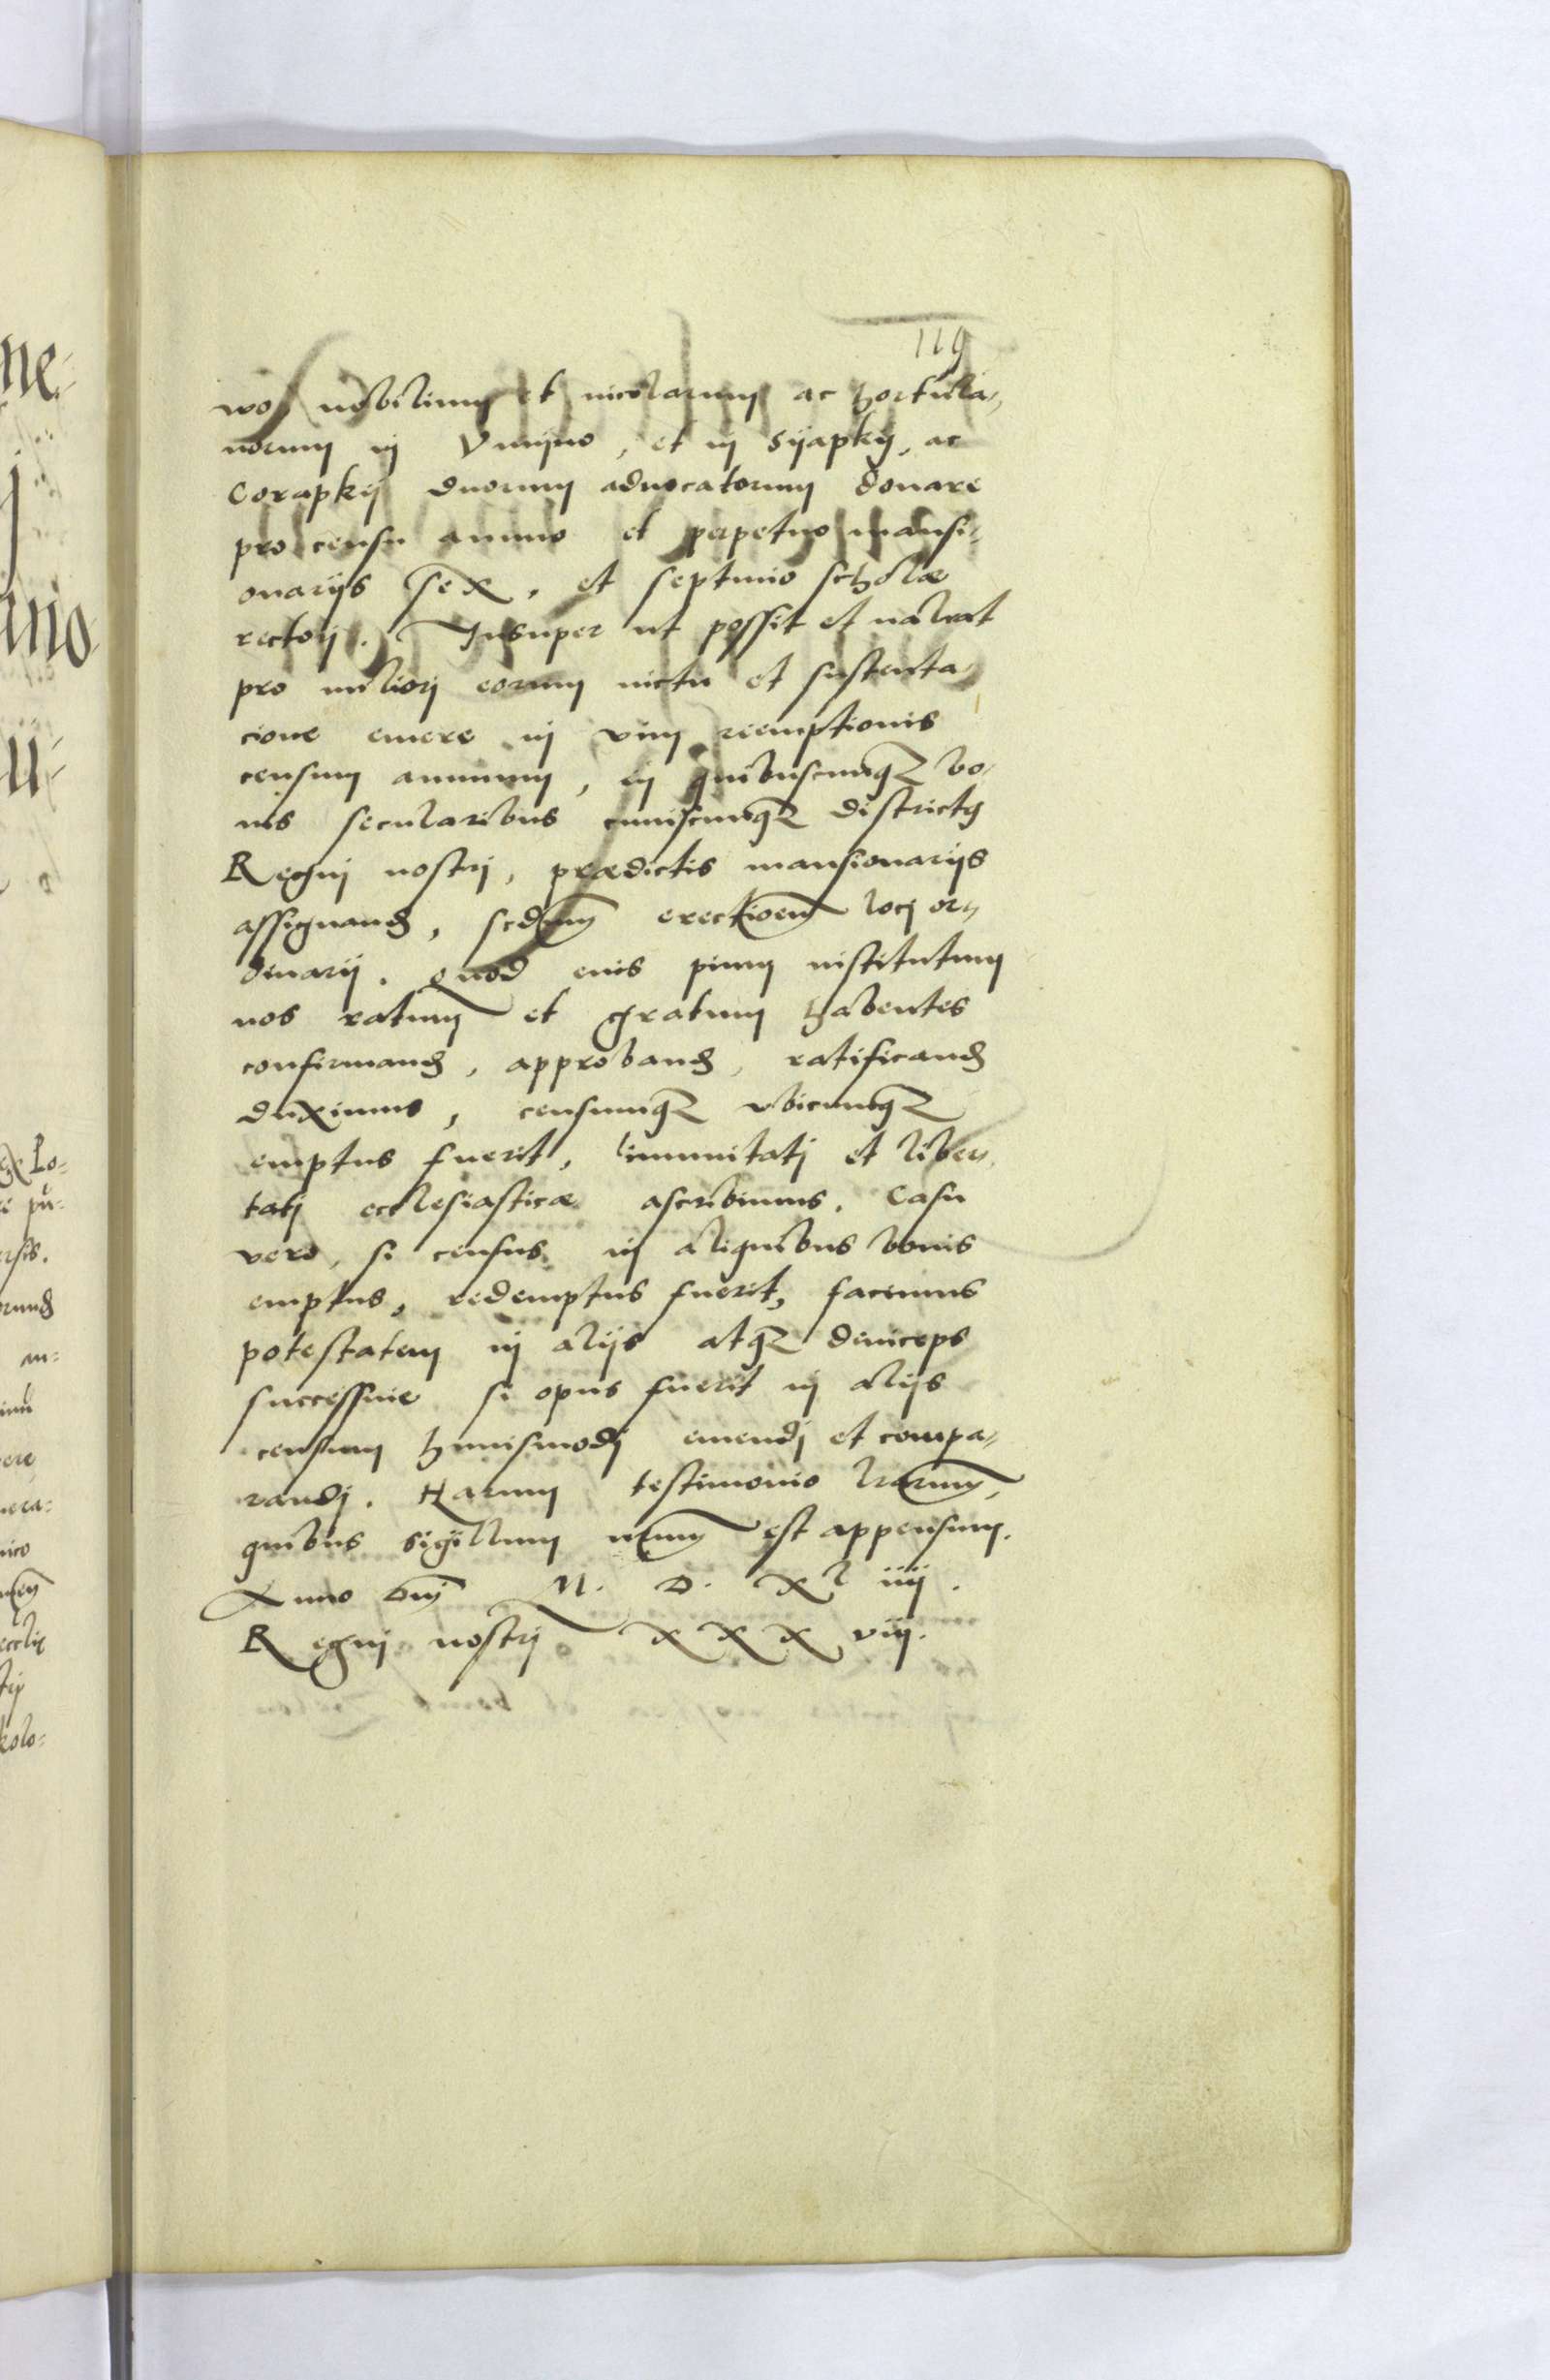 119
wo, nobilium et incolarum ac hortula-
norum in Vnijno, et in Syapky, ac
Corapky duorum aduocatorum donare
pro censu annuo et perpetuo mansi-
onarijs sex, et septimo scholæ
rectori. Insuper ut possit et ualeat
pro meliori eorum uictu et sustenta-
cione emere in vim reemptionis
censum annuum, in quibuscunq3 bo-
nis secularibus cuiuscunq3 districtus
Regni nostri, prædictis mansionarijs
assignand, scdum erectioem loci or-
dinarij. Quod eius pium institutum
nos ratum et gratum habentes
confirmand, approband, ratificand
duximus, censumq3 vbicunq3
emptus fuerit, immunitati et liber-
tati ecclesiasticæ ascribimus. Casu
vero, si census in aliquibus bonis
emptus, redemptus fuerit, facimus
potestatem in alijs atq3 deinceps
successiue si opus fuerit in alijs
censum huiusmodi emendi et compa-
randi. Harum testimonio lrarum,
quibus sigillum nrum est appensum.
Anno Dni M. D. Xl iiij.
Regni nostri XXX viij.